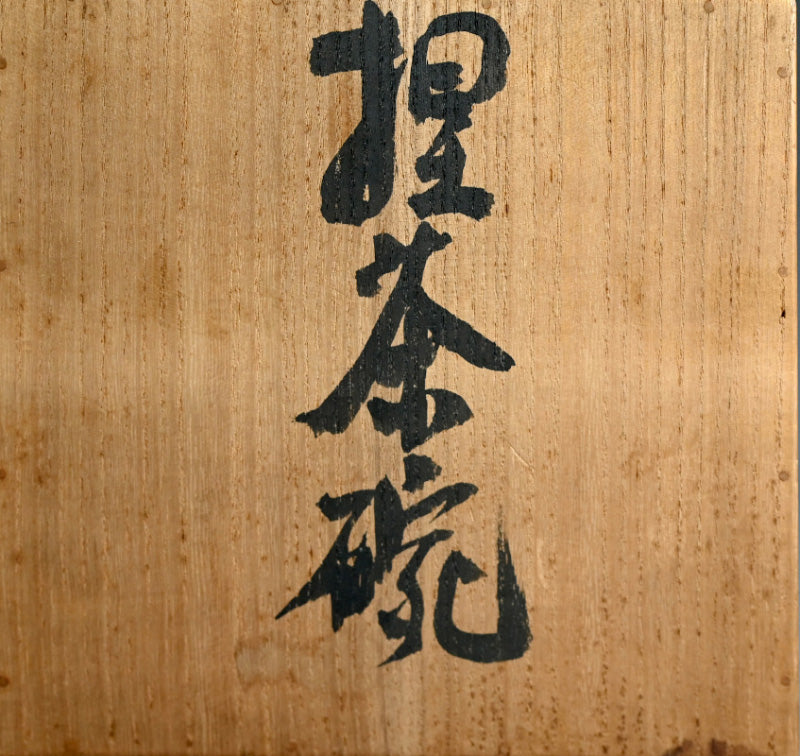 捏茶碗